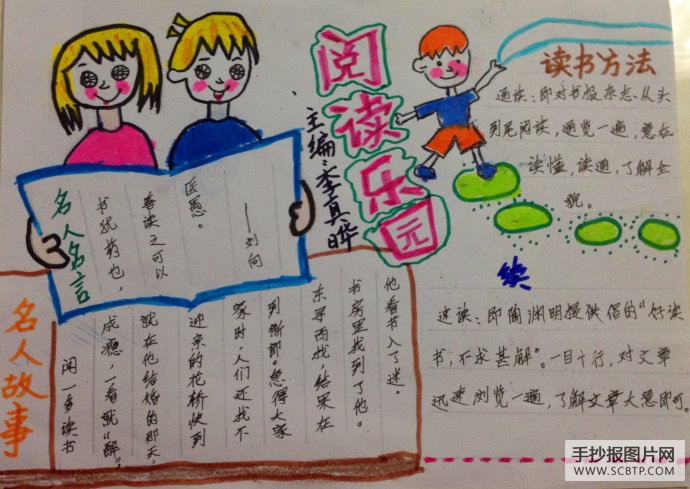 阅读乐园
主编:李真晔
名人名言
书犹药也,
善读之可以
医愚。
——刘向
名人故事
闻一多读书
成瘾,一看就“醉”,
就在他结婚的那天,
迎亲的花桥快到
家时,人们还找不
到新郎。急得大家
东寻西找,结果在
书房里找到了他。
他看书入了迷。
读书方法
通读:即对书报杂志从头
到尾阅读,通览一遍,意在
读懂,读通,了解全
貌。
续
速读:即陶渊明提供倡的“好读
书,不求甚解”。一目十行,对文章
迅速浏览一遍,了解文章大意即可。
手抄报图片网
WWW.SCBTP.COM